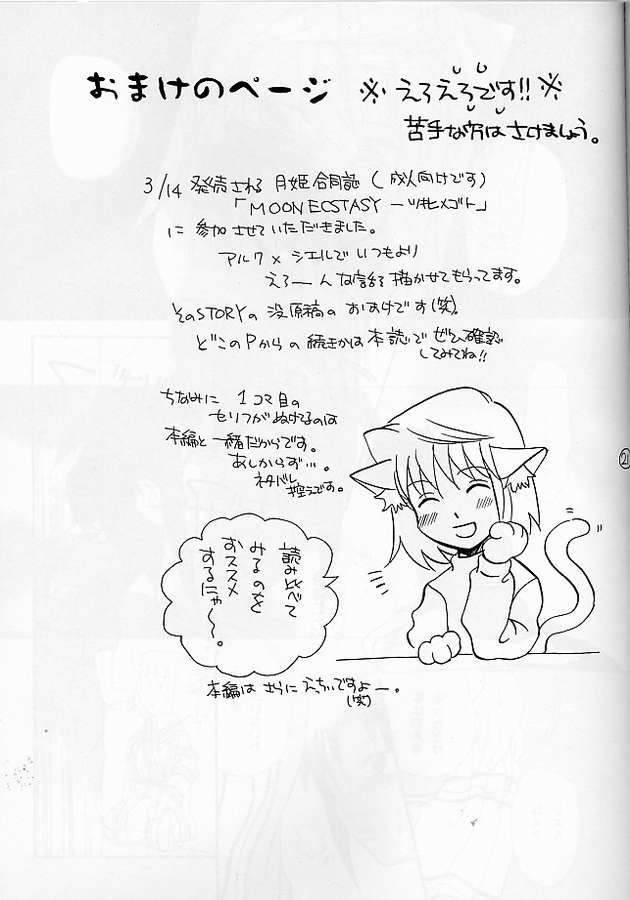 おまけのページ ※えろえろです!!※
苦手な方はさけましょう。
3/14 発売される 月姫合同誌（成人向けです）
「MOON ECSTASY －ツキヒメゴト」
に 参加させていただきました。
アルク×シエルで いつもより
えろーーんな話を描かせてもらってます。
そのSTORYの 没原稿の おまけです(笑)。
どこのPからの 続きかは 本誌で ぜひ確認
してみてね!!
ちなみに 1コマ目の
セリフがぬけてるのは
本編と一緒だからです。
あしからず…。
ネタバレ
控えです。
読み比べて
みるのを
おススメ
するにゃ～～。
本編は さらに えっちぃですよー。
(笑)
2